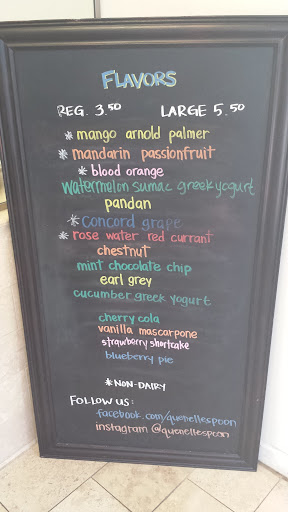 FLAVORS
REG. 3.50 LARGE 5.50
* mango arnold palmer
* mandarin passionfruit
* blood orange
watermelon sumac greek yogurt
pandan
* concord grape
* rose water red currant
chestnut
mint chocolate chip
earl grey
cucumber greek yogurt
cherry cola
vanilla mascarpone
strawberry shortcake
blueberry pie
* NON-DAIRY
FOLLOW US:
facebook.com/quenellespoon
instagram @quenellespoon